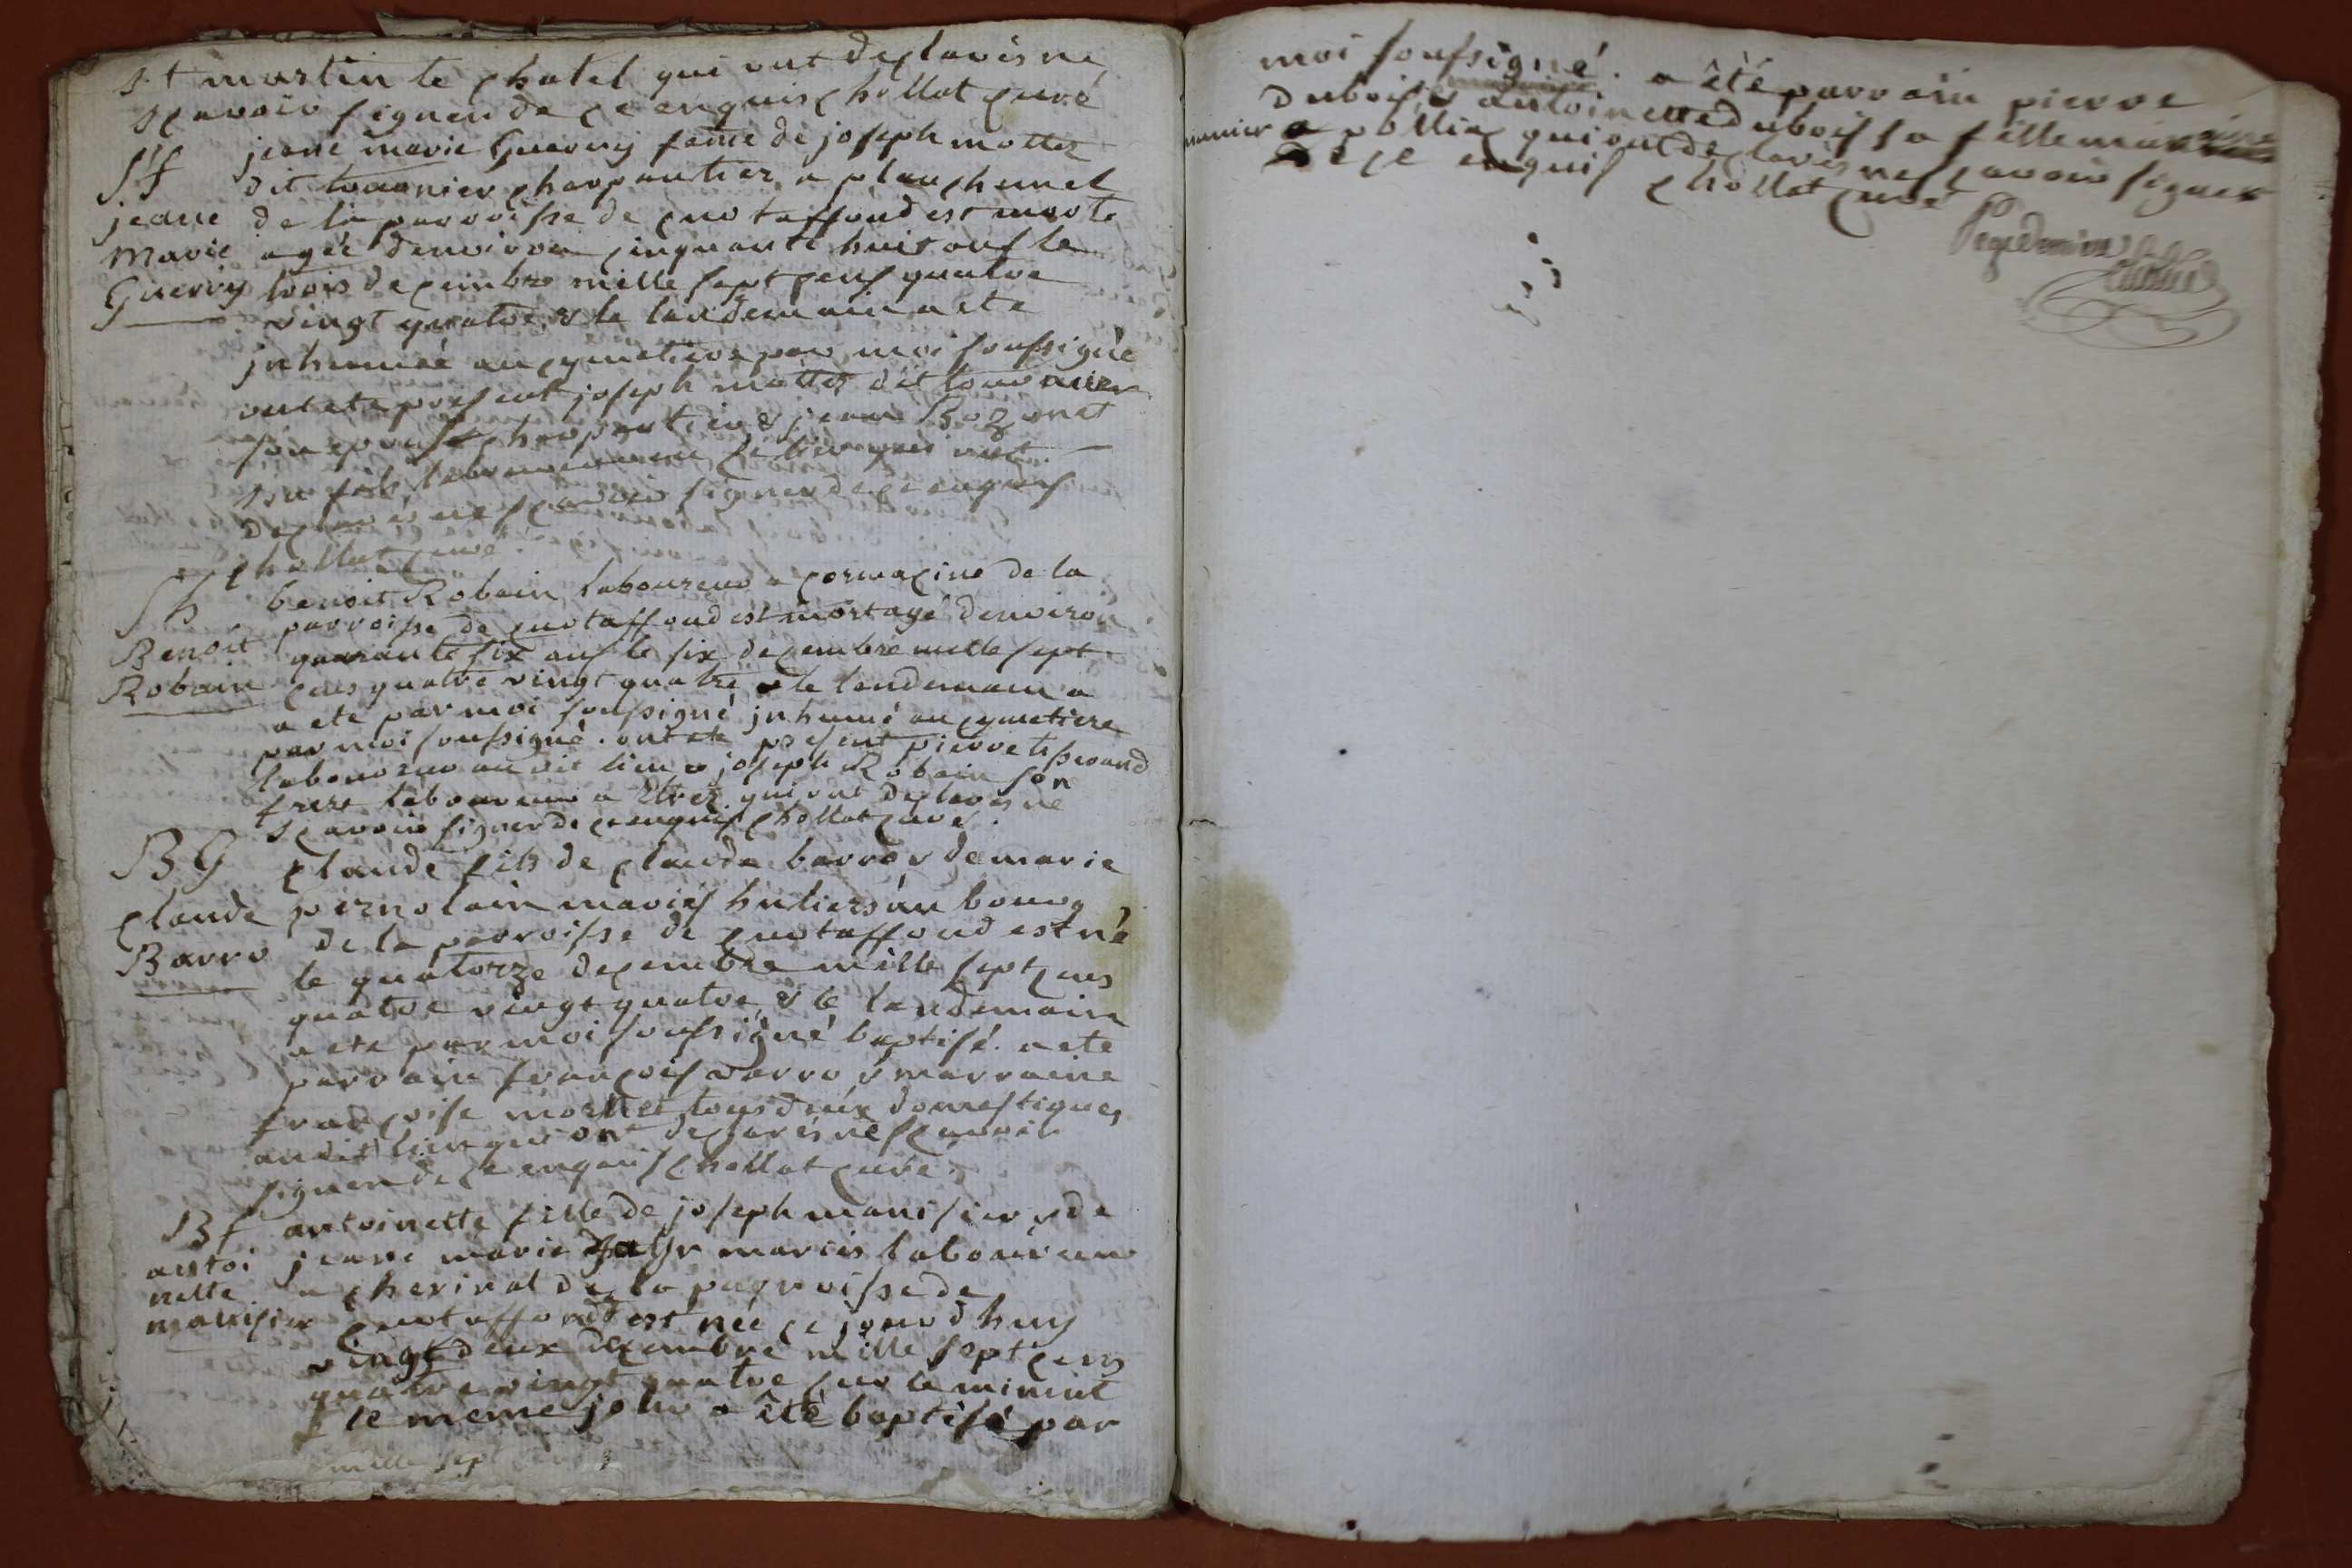 st martin le chatel qui ont declarés ne
scavoir signer de ce enquis chollat curé
Sf jeane marie Guerriy feme de joseph mottez
jeane dit tournier charpantier a planchemel
Marie de la parroisse de curtaffond est morte
Guerriy agée denviron cinquante huit ans le
trois decembre mille sept cens quatre
vingt quatre, & le landemain a ete
jnhumée au cymetiere par moi soussigné
ont ete present joseph mottez dit tournier
son epoux charpantier & jean Bozonet
declarés ne scavoir signer de ce enquis
chollat curé.
benoit Robain laboureur a cormacine de la
Benoit parroisse de curtaffond est mort agé denviron
Robain quarante six ans le six decembre mille sept
cens quatre vingt quatre & le lendemain a
a ete par moi soussigné jnhumé au cymetiere
par moi soussigné. ont ete present pierre tisserand
laboureur au dit lieu & joseph Robain son
frere laboureur a Etrez qui ont declarés ne
scavoir signer de ce enquis chollat curé.
BG claude fils de claude barro & de marie
claude pernolain mariés huliers au bourg
Barro de la parroisse de curtaffond est né
le quatorze decembre mille sept cens
quatre vingt quatre, & le landemain
a ete par moi soussigné baptisé. a ete
parrain françois varro & marraine
françoise tous deux domestiques
audit lieu qui ont declarés ne scavoir
signer de ce enquis chollat curé.
Bf antoinette fille de joseph manisier & de
antoi jeane marie mariés laboureur
nette a cherinal de la parroisse de
manisier curtaffond est née ce jourdhuy
vingt deux decembre mille sept cens
quatre vingt quatre
le meme jour a été baptisé par
mille sept
moi soussigné. a été parrain pierre
dubois, & antoinette dubois sa fille marraine
manier a polliac qui ont declarés ne scavoir signer
de ce enquis chollat curé